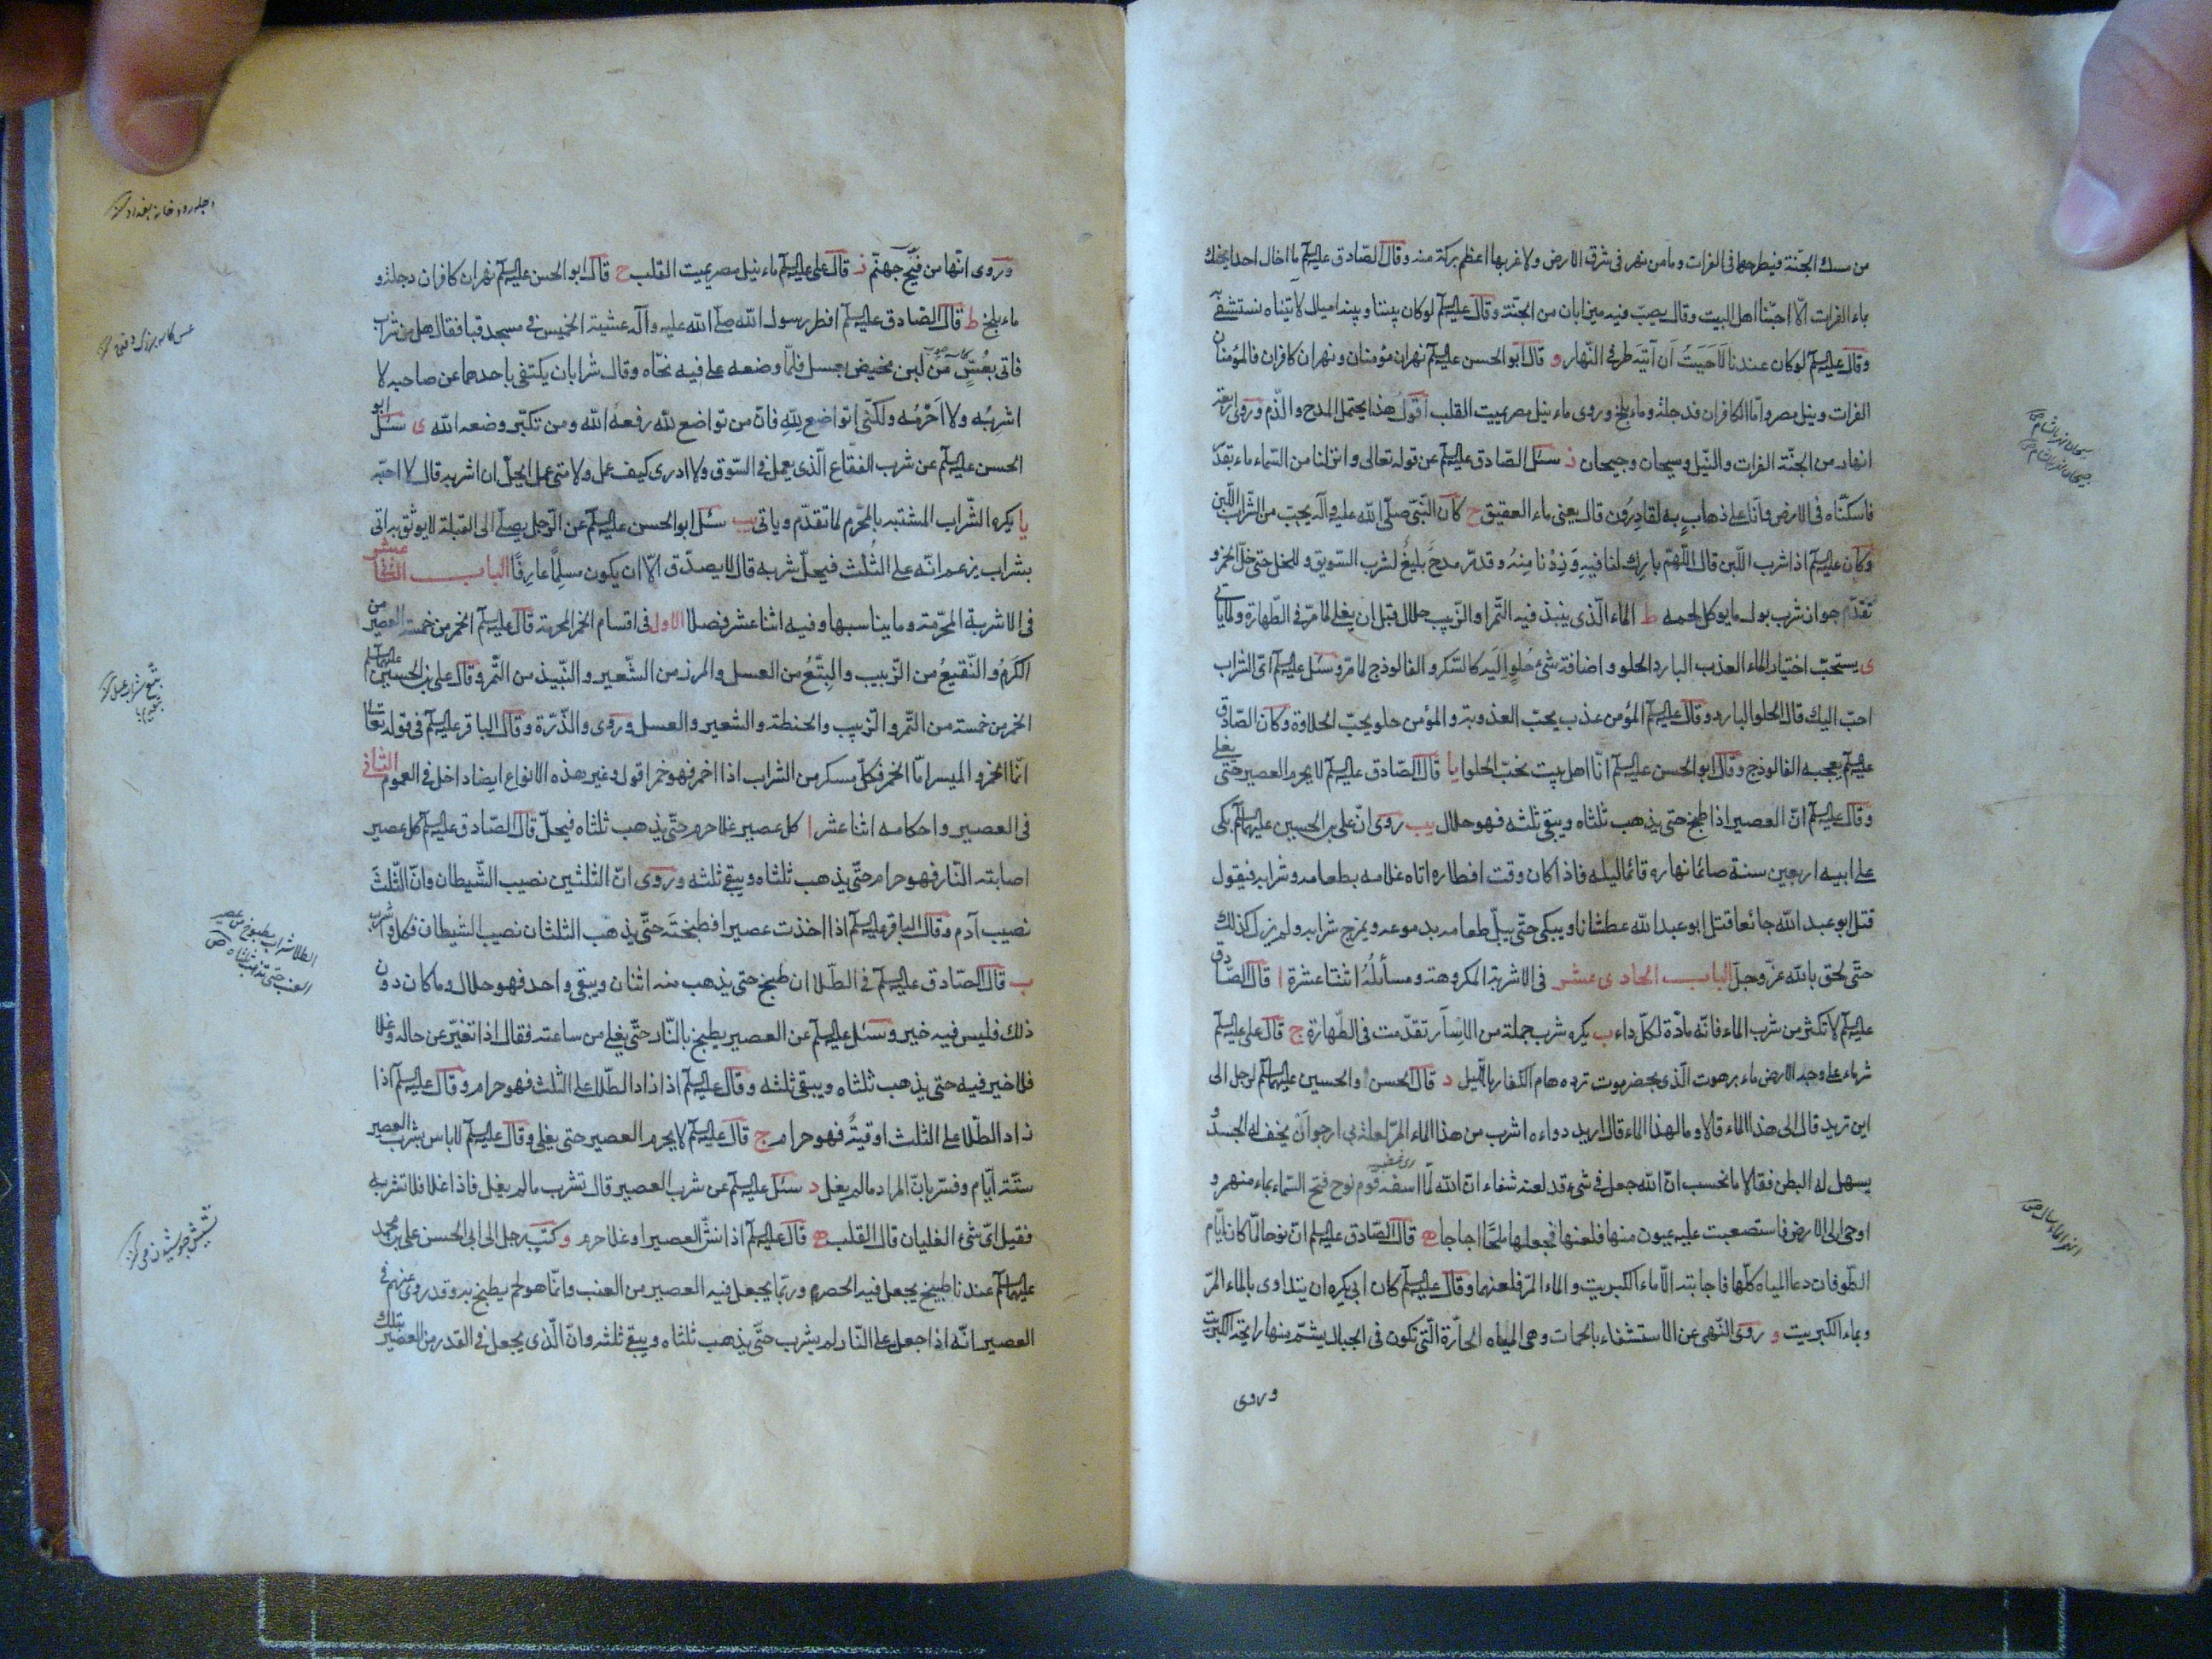 من مسك الجنة فيطرحها فى الفرات وما من نهر فى شرق الارض ولا غربها اعظم بركة منه وقال الصادق عليه السلم ما اخال احدا يحنك
بماء الفرات الّا احبّنا اهل البيت وقال يصبّ فيه ميزابان من الجنّة وقال عليه السلم لو كان بيننا وبينه اميال لاتيناه نستشفى
وقال عليه السلم لو كان عندنا لَاَحْبَبْتُ اَن آتيَه طرفى النّهار و قال ابو الحسن عليه السلم نهران مؤمنان ونهران كافران فالمؤمنان
الفرات ونيل مصر وامّا الكافران فدجلة وماء بلخ وروى ماء نيل مصر يميت القلب اقول هذا يحتمل المدح والذّم وروى اربعة
انهار من الجنّة الفرات والنّيل وسيحان وجيحان ز سئل الصّادق عليه السلم عن قوله تعالى وانزلنا من السّماء ماء بقدر
فاسكنّاه فى الارض وانّا على ذهابٍ به لقادِرُون قال يعنى ماء العقيق ح كان النّبىّ صلّى الله عليه وآله يحب من الشراب اللّبن
وكان عليه السلم اذا شرب اللّبن قال اللّهمّ بارِك لنا فيهِ وَزِدْنا مِنهُ وقد مرّ مدحٌ بليغٌ لشرب السّويق وللخلّ حتى خلّ الخمر و
تقدّم جواز شرب بول ما يوكل لحمه ط الماء الّذى ينبذ فيه التّمر او الزّبيب حلال قبل ان يغلى لما مرّ فى الطّهارة ولما ياتى
ى يستحبّ اختيار الماء العذب البارد الحلو واضافة شىء حُلوٍ اِلَيه كالسّكر والفالوذج لما مرّ وسئل عليه السلم اىّ الشراب
احبّ اليك قال الحلو البارد وقال عليه السلم المؤمن عذب يحبّ العذوبة والمؤمن حلو يحبّ الحلاوة وكان الصّادق
عليه السلم يعجبه الفالوذج وقال ابو الحسن عليه السلم انّا اهل بيت نحبّ الحلوا يا قال الصّادق عليه السلم لا يحرم العصير حتى يغلى
وقال عليه السلم انّ العصير اذا طبخ حتى يذهب ثلثاه ويبقى ثلثه فهو حلال يب روى انّ على بن الحسين عليهما السلم بكى
على ابيه اربعين سنة صائما نهاره قائما ليله فاذا كان وقت افطاره اتاه غلامه بطعامه وشرابه فيقول
قتل ابو عبد الله جائعا قتل ابو عبد الله عطشانا ويبكى حتّى يبلّ طعامه بدموعه ويمزج شرابه ولم يزل كذلك
حتّى لحق بالله عزّ وجلّ الباب الحادى عشر فى الاشربة المكروهة ومسائله اثنتا عشرة ا قال الصّادق
عليه السلم لا تكثر من شرب الماء فانّه مادّة لكلّ داء ب يكره شرب جملة من الاسآر تقدّمت فى الطّهارة ج قال على عليه السلم
شر ماء على وجه الارض ماء برهوت الّذى بحضرموت ترده هام الكفار بالليل د قال الحسن والحسين عليهما السلم لرجل الى
اين تريد قال الى هذا الماء قالا وما لهذا الماء قال اريد دواءه اشرب من هذا الماء المرّ لعلة بى ارجو اَنْ يخف له الجسدُ و
يسهل له البطن فقالا ما نحسب انّ الله جعل فى شىء قد لعنه شفاء انّ الله لمّا اسفه قوم نوح فتح السّماء بماء منهمر و
اوحى الى الارض فاستصعبت عليه عيون منها فلعنها فجعلها ملحًا اجاجا ه قال الصّادق عليه السلم انّ نوحا لمّا كان ايّام
الطّوفان دعا المياه كلّها فاجابته الّا ماء الكبريت والماء المرّ فلعنهما وقال عليه السلم كان ابى يكره ان يتداوى بالماء المرّ
وبماء الكبريت و روى النّهى عن الاستشفاء بالحمات وهى المياه الحارّة الّتى تكون فى الجبال يشتم منها رايحة الكبريت
وروى
وروى انّها من فَيْحِ جهنّم ز قال على عليه السلم ماء نيل مصر يميت القلب ح قال ابو الحسن عليه السلم نهران كافران دجلة و
ماء بلخ ط قال الصّادق عليه السلم افطر رسول الله صلى الله عليه وآله عشية الخميس فى مسجد قبا فقال هل من شراب
فاتى بعُسٍّ من لبن مخيض بعسل فلمّا وضعه على فيه نحّاه وقال شرابان يكتفى باحدهما عن صاحبه لا
اشربُه ولا اُحَرّمُه ولكنّى اتواضع للهِ فانّ من تواضع لله رفعه الله ومن تكبّر وضعه الله ى سئل ابو
الحسن عليه السلم عن شرب الفقّاع الّذى يعمل فى السّوق ولا ادرى كيف عمل ولا متى عمل ايحلّ ان اشربه قال لا احبّه
يا يكره الشّراب المشتبه بالمحرّم لما تقدّم وياتى يب سئل ابو الحسن عليه السلم عن الرّجل يصلّى الى القبلة لا يوثق به اتى
بشراب يزعم انّه على الثُلُث فيحلّ شربه قال لا يصدّق الّا ان يكون مسلِمًا عارِفًا الباب الثانى عشر
فى الاشربة المحرّمة وما يناسبها وفيه اثنا عشر فصلا الاول فى اقسام الخمر المحرمة قال عليه السلم الخمر من خمسة العصير من
الكَرْمِ والنّقيعُ من الزّبيب والبِتْعُ من العسل والمرز من الشّعير والنّبيذ من التّمر وقال على بن الحسين عليهما السلم
الخمر من خمسة من التّمر والزّبيب والحنطة والشعير والعسل وروى والذّرة وقال الباقر عليه السلم فى قوله تعالى
انّما الخمر والميسر امّا الخمر فكلّ مسكر من الشراب اذا اخمر فهو خمر اقول وغير هذه الانواع ايضا داخل فى العموم الثانى
فى العصير واحكامه اثنا عشر ا كل عصير غلا حرم حتّى يذهب ثلثاه فيحلّ قال الصّادق عليه السلم كل عصير
اصابته النّار فهو حرام حتّى يذهب ثلثاه ويبقى ثلثه وروى انّ الثلثين نصيب الشّيطان وانّ الثّلثَ
نصيب آدم وقال الباقر عليه السلم اذا اخذت عصيرا فطبختَه حتّى يذهب الثلثان نصيب الشيطان فكل واشرب
ب قال الصّادق عليه السلم فى الطّلا ان طبخ حتى يذهب منه اثنان ويبقى واحد فهو حلال وما كان دون
ذلك فليس فيه خير وسئل عليه السلم عن العصير يطبخ بالنّار حتّى يغلى من ساعته فقال اذا تغيّر عن حاله وغلا
فلا خير فيه حتى يذهب ثلثاه ويبقى ثلثه وقال عليه السلم اذا زاد الطّلا على الثّلث فهو حرام وقال عليه السلم اذا
زاد الطّلا على الثلث اوقيةً فهو حرام ج قال عليه السلم لا يحرم العصير حتى يغلى وقال عليه السلم لا باس بشرب العصير
ستّة ايّام وفسّر بانّ المراد ما لم يغل د سئل عليه السلم عن شرب العصير قال تشرب ما لم يغل فاذا غلا فلا تشربه
فقيل اىّ شىء الغليان قال القلب ه قال عليه السلم اذا نشّ العصير او غلا حرم و كتب رجل الى ابى الحسن على بن محمد
عليهما السلم عندنا طبيخ يجعل فيه الحصرم وربّما يجعل فيه العصير من العنب وانّما هو لحم يطبخ به وقد روى عنهم فى
العصير انّه اذا جعل على النّار لم يشرب حتّى يذهب ثلثاه ويبقى ثلثه وانّ الّذى يجعل فى القدر من العصير بتلك
دجله رودخانه بغداد
الطلا شراب مطبوخ من عصير
العنب حتى تذهب ثلثاه